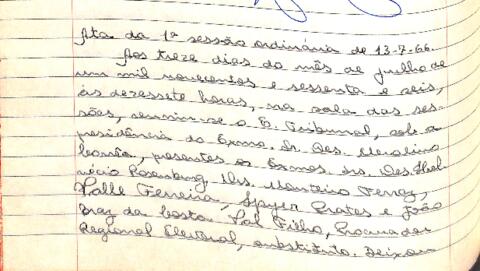 Ata da 1ª sessão ordinária de 13-7-66.
Aos treze dias do mês de julho de
um mil novecentos e sessenta e seis,
às dezessete horas, na sala das ses-
sões, reuniu-se o E. Tribunal, sob a
presidência do Exmo. Sr. Des. Merolino
Corrêa, presentes os Exmos. Srs. Des. Hel-
vécio Rosenburg, Drs. Monteiro Ferraz,
Valle Ferreira, Spyer Prates e João
Braz da Costa Val Filho, Procurador
Regional Eleitoral, substituto. Deixou